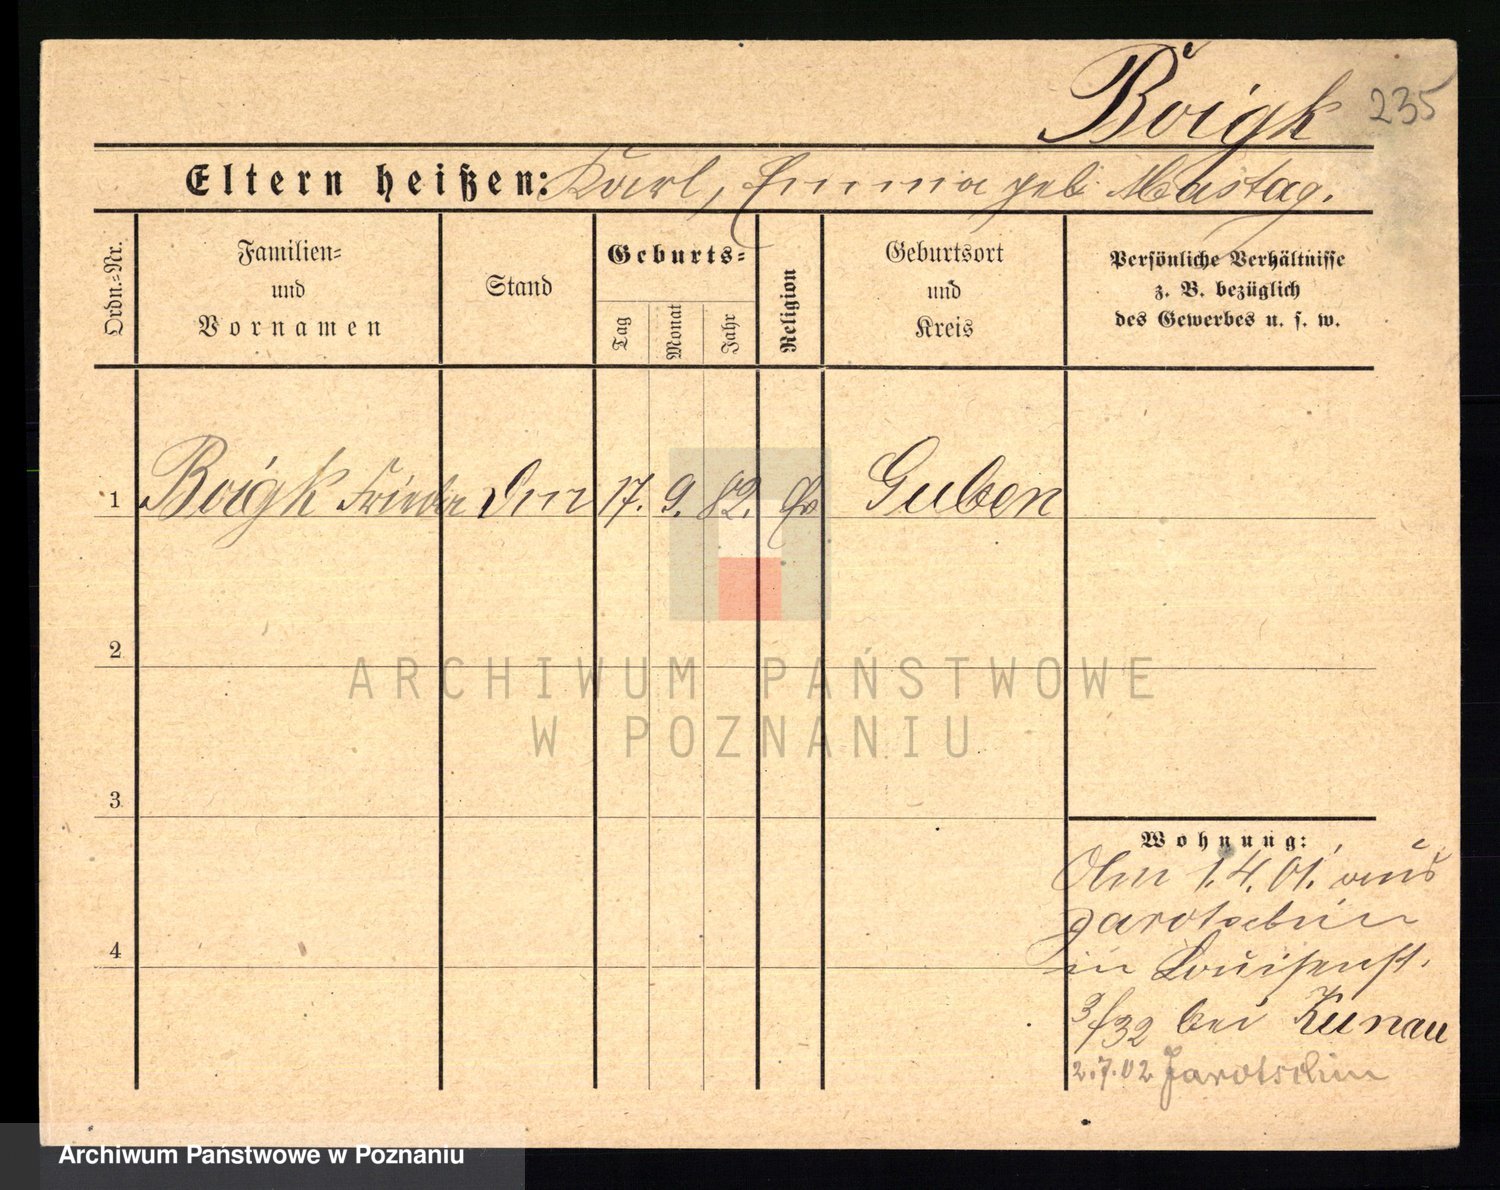 Boigk 235
Eltern heißen: Karl, Emma geb. Mastag.
Ordn.=Nr.
Familien=
und
Vornamen
Stand
Geburts=
Tag
Monat
Jahr
Religion
Geburtsort
und
Kreis
Persönliche Verhältnisse
z. B. bezüglich
des Gewerbes u. s. w.
1 Boigk Frieda 17. 9. 82. Ev Guben
2
3
4
Wohnung:
1.4.01. aus
Jarotschin
in Louisenst.
3/32 bei Kunau
2.7.02 Jarotschin
ARCHIWUM PAŃSTWOWE
W POZNANIU
Archiwum Państwowe w Poznaniu